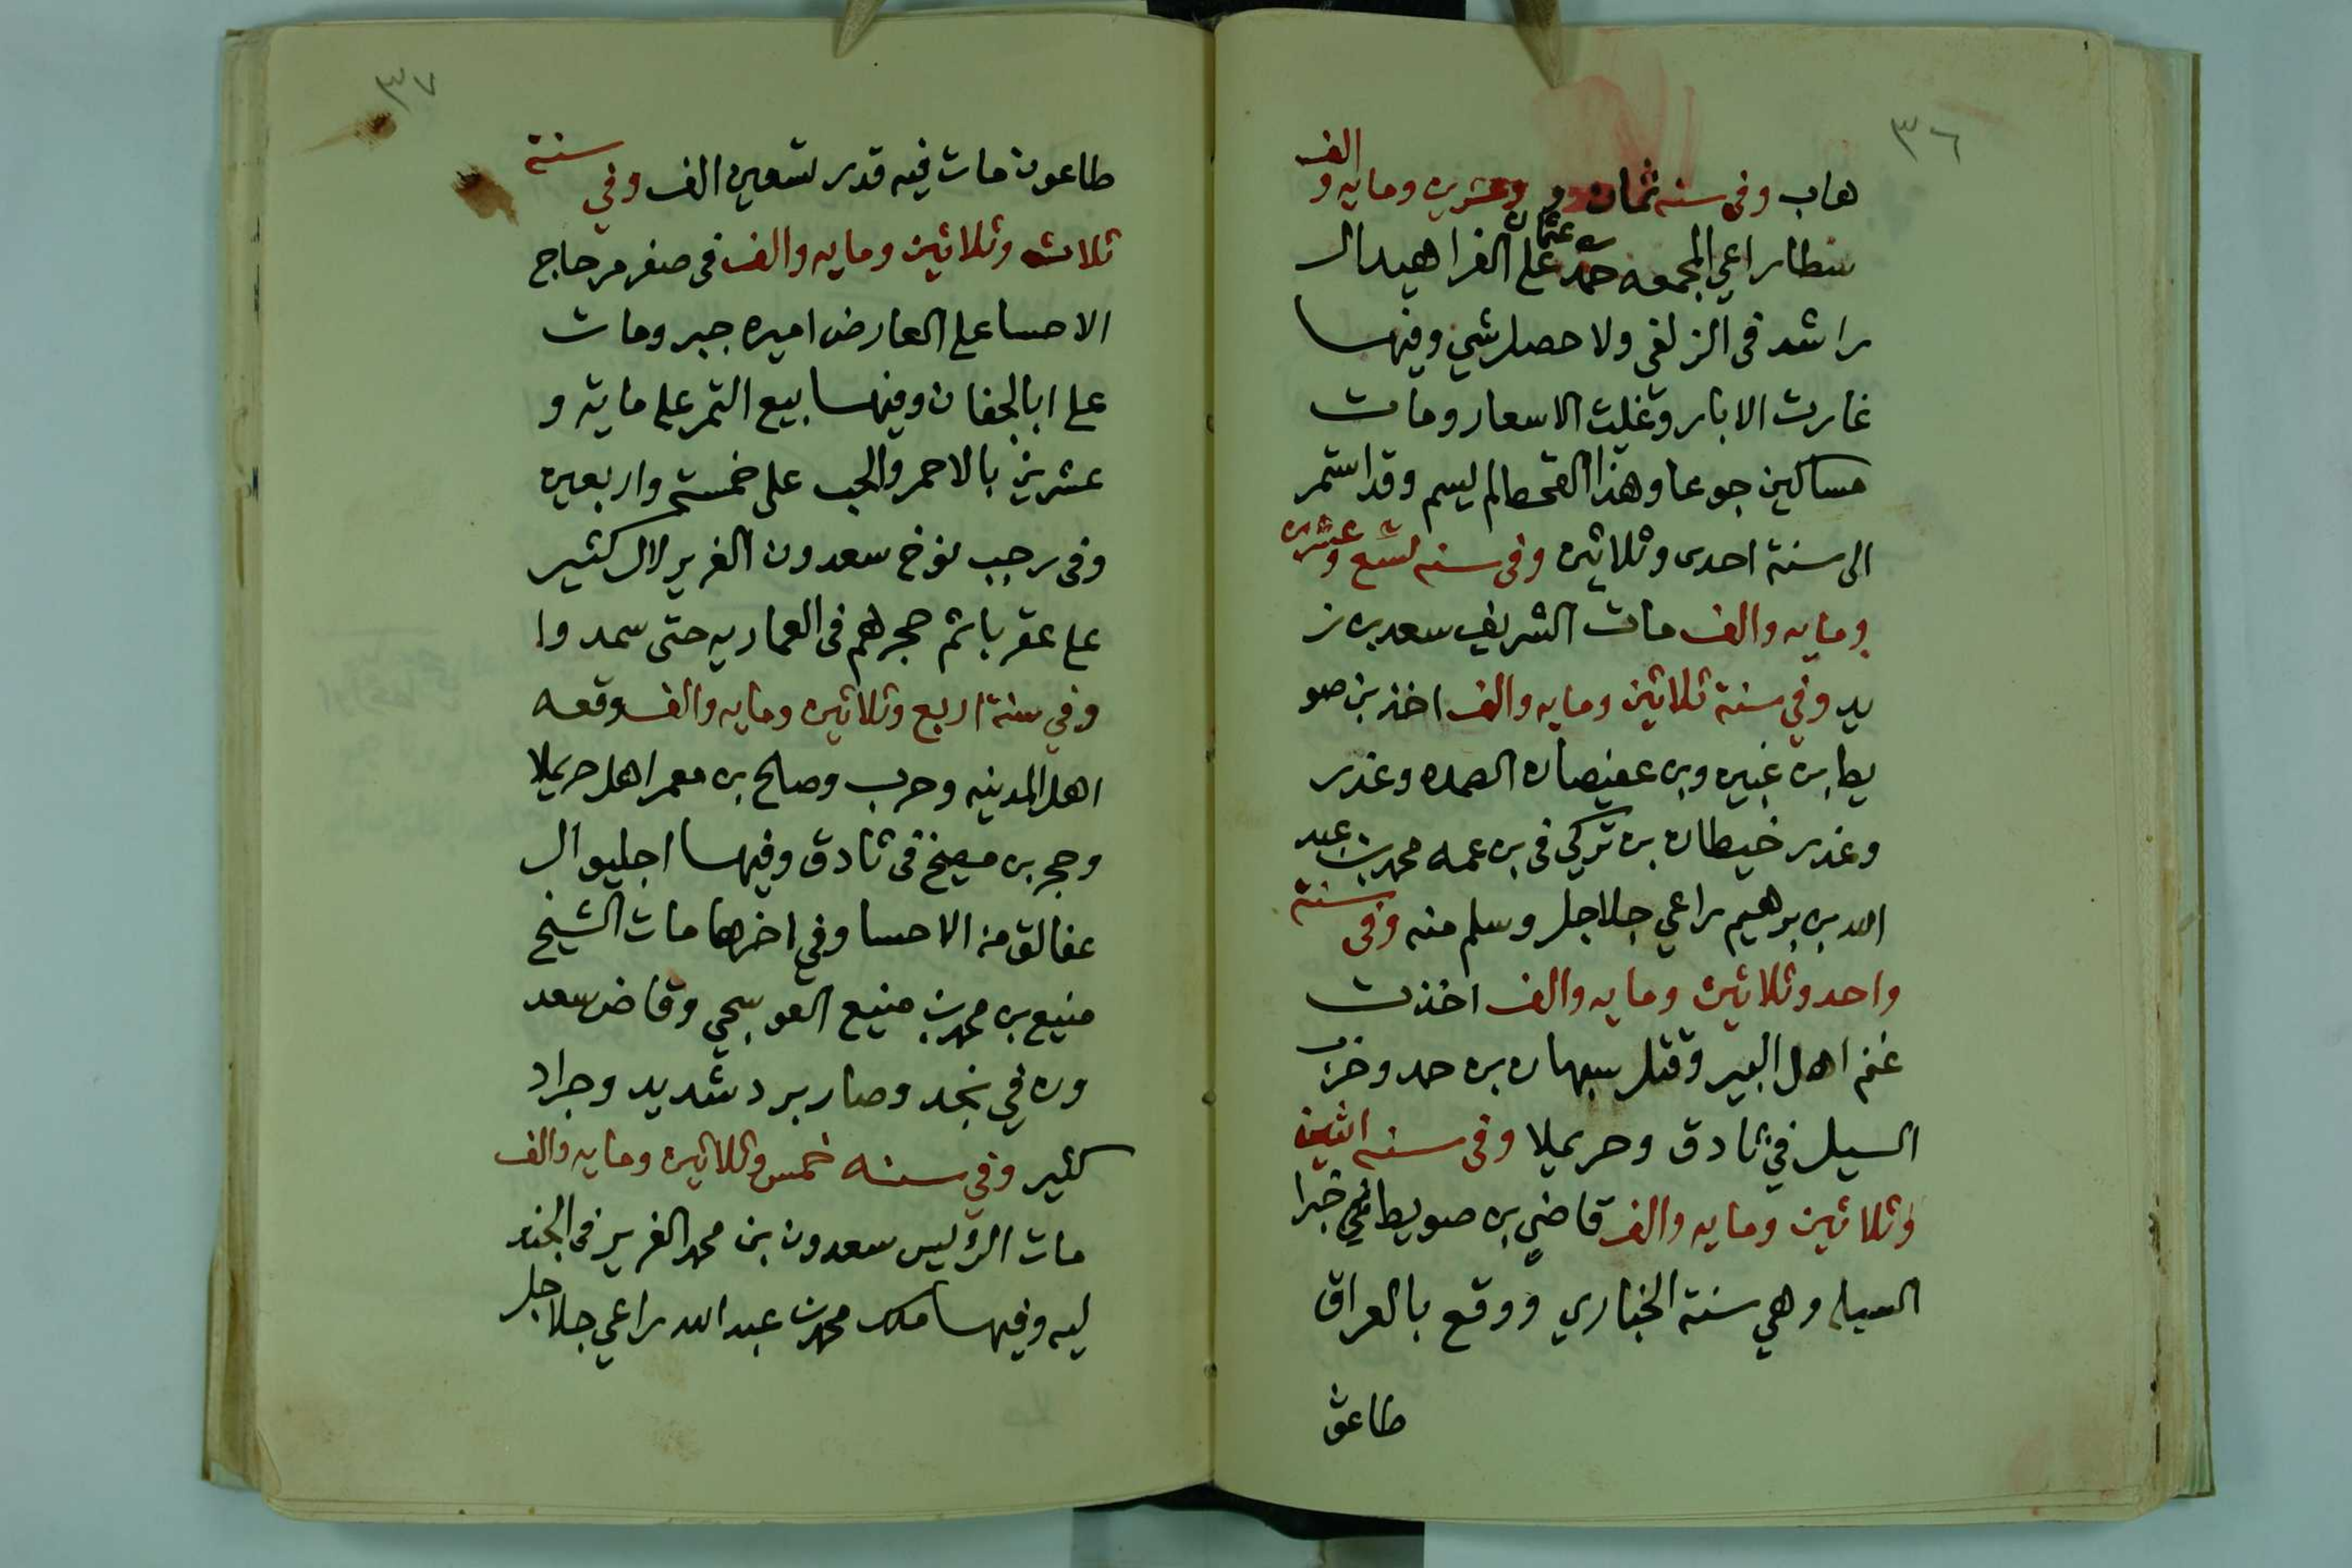 ٣٦
هاب وفي سنه ثمان و وعشرين ومايه والف
سطا راعي المجمعه حمد بن عثمان على الفراهيد ال
راشد فى الزلفى ولا حصل شي وفيها
غارت الابار وغليت الاسعار ومات
مساكين جوعا وهذا القحط لم يسم وقد استمر
الى سنة احدى وثلاثين وفى سنه تسع وعشرين
ومايه والف مات الشريف سعد بن ز
يد وفي سنة ثلاثين ومايه والف اخذ بن صو
يط ابن غبين وبن عفيصان الصمده وغدر
وغدر خيطان بن تركي فى بن عمه محمد بن عبد
الله بن برهيم راعي جلاجل وسلم منه وفى سنة
واحد وثلاثين ومايه والف اخذت
غنم اهل البير وقتل سبهان بن حمد وخرب
السيل في ثادق وحريملا وفى سنه اثنين
وثلاثين ومايه والف قاضي بن صويط في خبرا
السيا وهي سنة الخباري ووقع بالعراق
طاعو
٣٧
طاعون مات فيه قدر تسعين الف وفي سنة
ثلاث وثلاثين ومايه والف فى صفر مر حاج
الاحسا على العارض اميره جبر ومات
على ابا الجفان وفيها بيع التمر على ماية و
عشرين بالاحمر والحب على خمسة واربعين
وفى رجب نوخ سعدون الغرير لال كثير
على عقربا ثم حجرهم فى العماريه حتى سمدوا
وفي سنة اربع وثلاثين ومايه والف وقعه
اهل المدينه وحرب وصالح بن معمر اهل حريملا
وحجر بن مصيخ فى ثادق وفيها اجليو ال
عفالق من الاحسا وفي اخرها مات الشيخ
منيع بن محمد بن منيع العوسجي وقاض سعد
ون في نجد وصار برد شديد وجراد
كثير وفي سنه خمس وثلاثين ومايه والف
مات الرئيس سعدون بن محمد الغرير فى الجند
ليه وفيها ملك محمد بن عبد الله راعي جلاجل